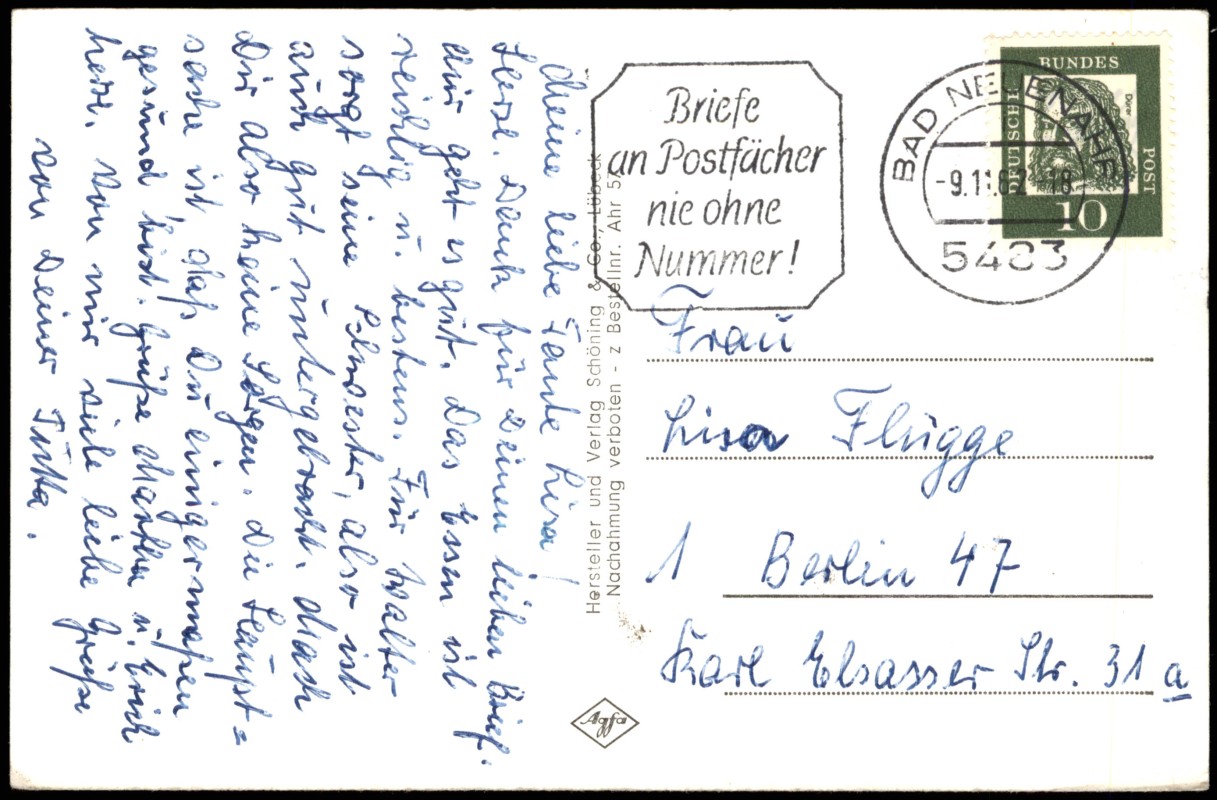 Meine liebe Tante Lisa!
Herzl. Dank für Deinen lieben Brief.
Mir geht es gut. Das Essen ist
reichlig u. bestens. Für Walter
sorgt seine Schwester, also ist
auch gut untergebracht. Mach
Dir also keine Sorgen. Die Haupt=
sache ist daß Du einigermaßen
gesund bist. Grüße Martha u. Erich
herzl. Von mir viele liebe Grüße
von Deiner Jutta.
Hersteller und Verlag Schöning & Co., Lübeck
Nachahmung verboten - z Bestellnr. Ahr
Agfa
Briefe
an Postfächer
nie ohne
Nummer!
BAD NEUENAHR
5483
DEUTSCHE
BUNDES
POST
Dürer
10
Frau
Lisa Flügge
1 Berlin 47
Karl Elsasser Str. 31 a